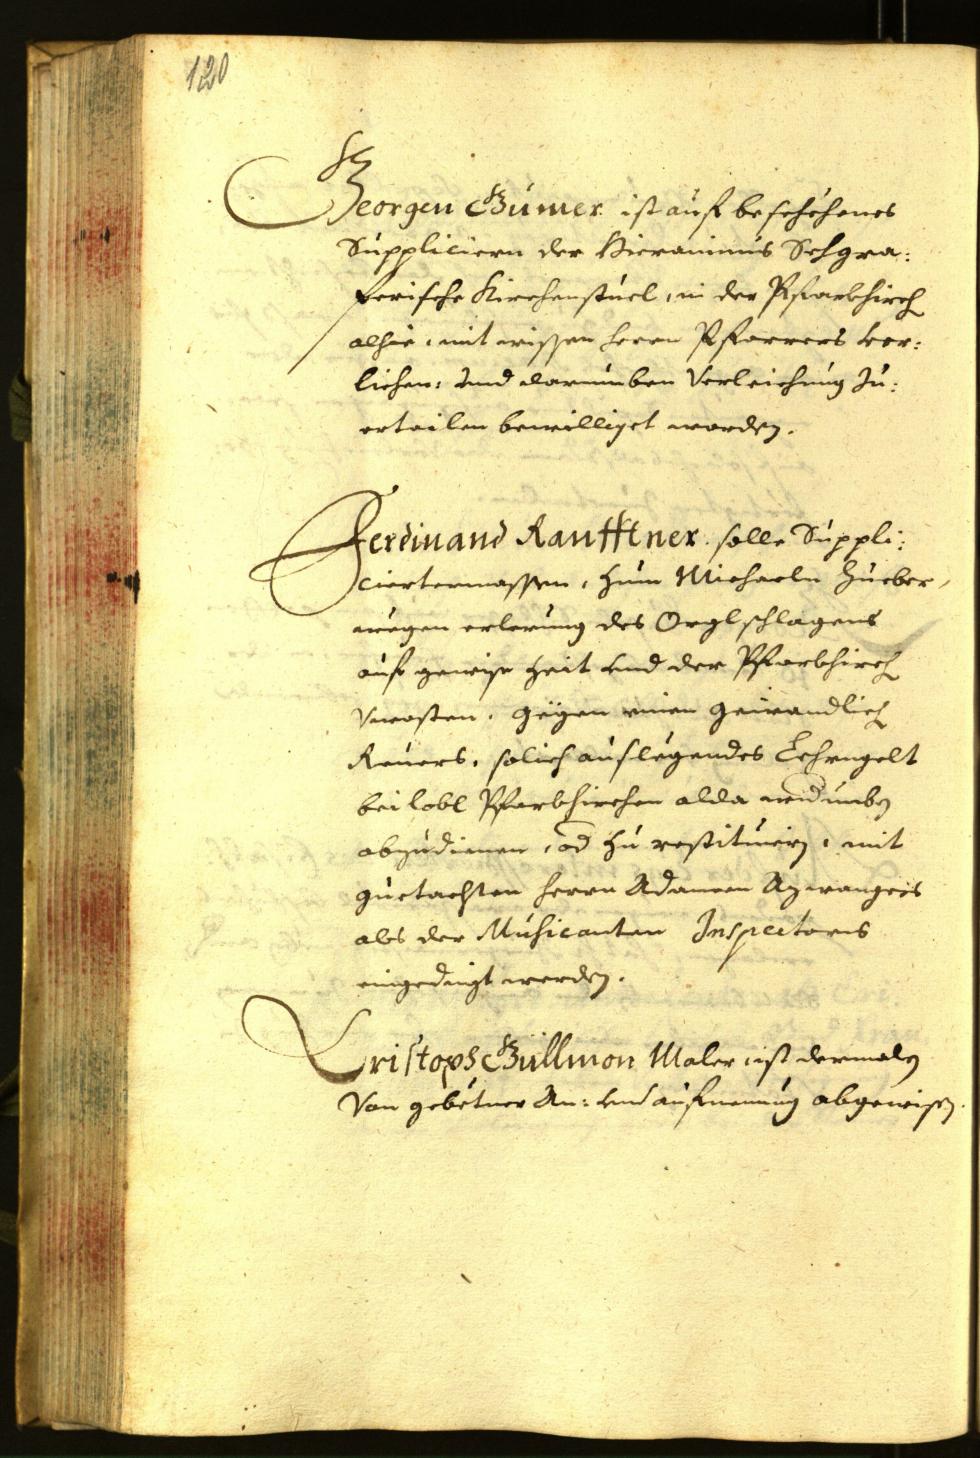 120
Georgen Gumer ist auf beschéhenes
Suppliciern der Hieronimus Sehgra:
ferische Kirchenstuel, in der Pfarrkhirch
alhie, mit wissen herrn Pfarrers ver:
lichen: und darumben Verleichung zu:
ertailen bewilliget worden.
Ferdinand Raufftner. solle Suppli:
ciertermassen, zum Michaeln
wegen erlernung des Orglschlagens
auf gewise zeit und der Pfarrkhirch
Uncosten, gegen einen gewondlich
Revers, solich auslegendes Lehrngelt
bei lobl Pfarrkhirchen alda widumben
abzudienen, od zu restituiern, mit
guetachten herrn Adamen Azwangers
als der Musicanten Inspectorns
eingedingt werden.
Cristoph Gullmon Maler ist dermalen
Von gebetner An: und aufnemung abgewisen.